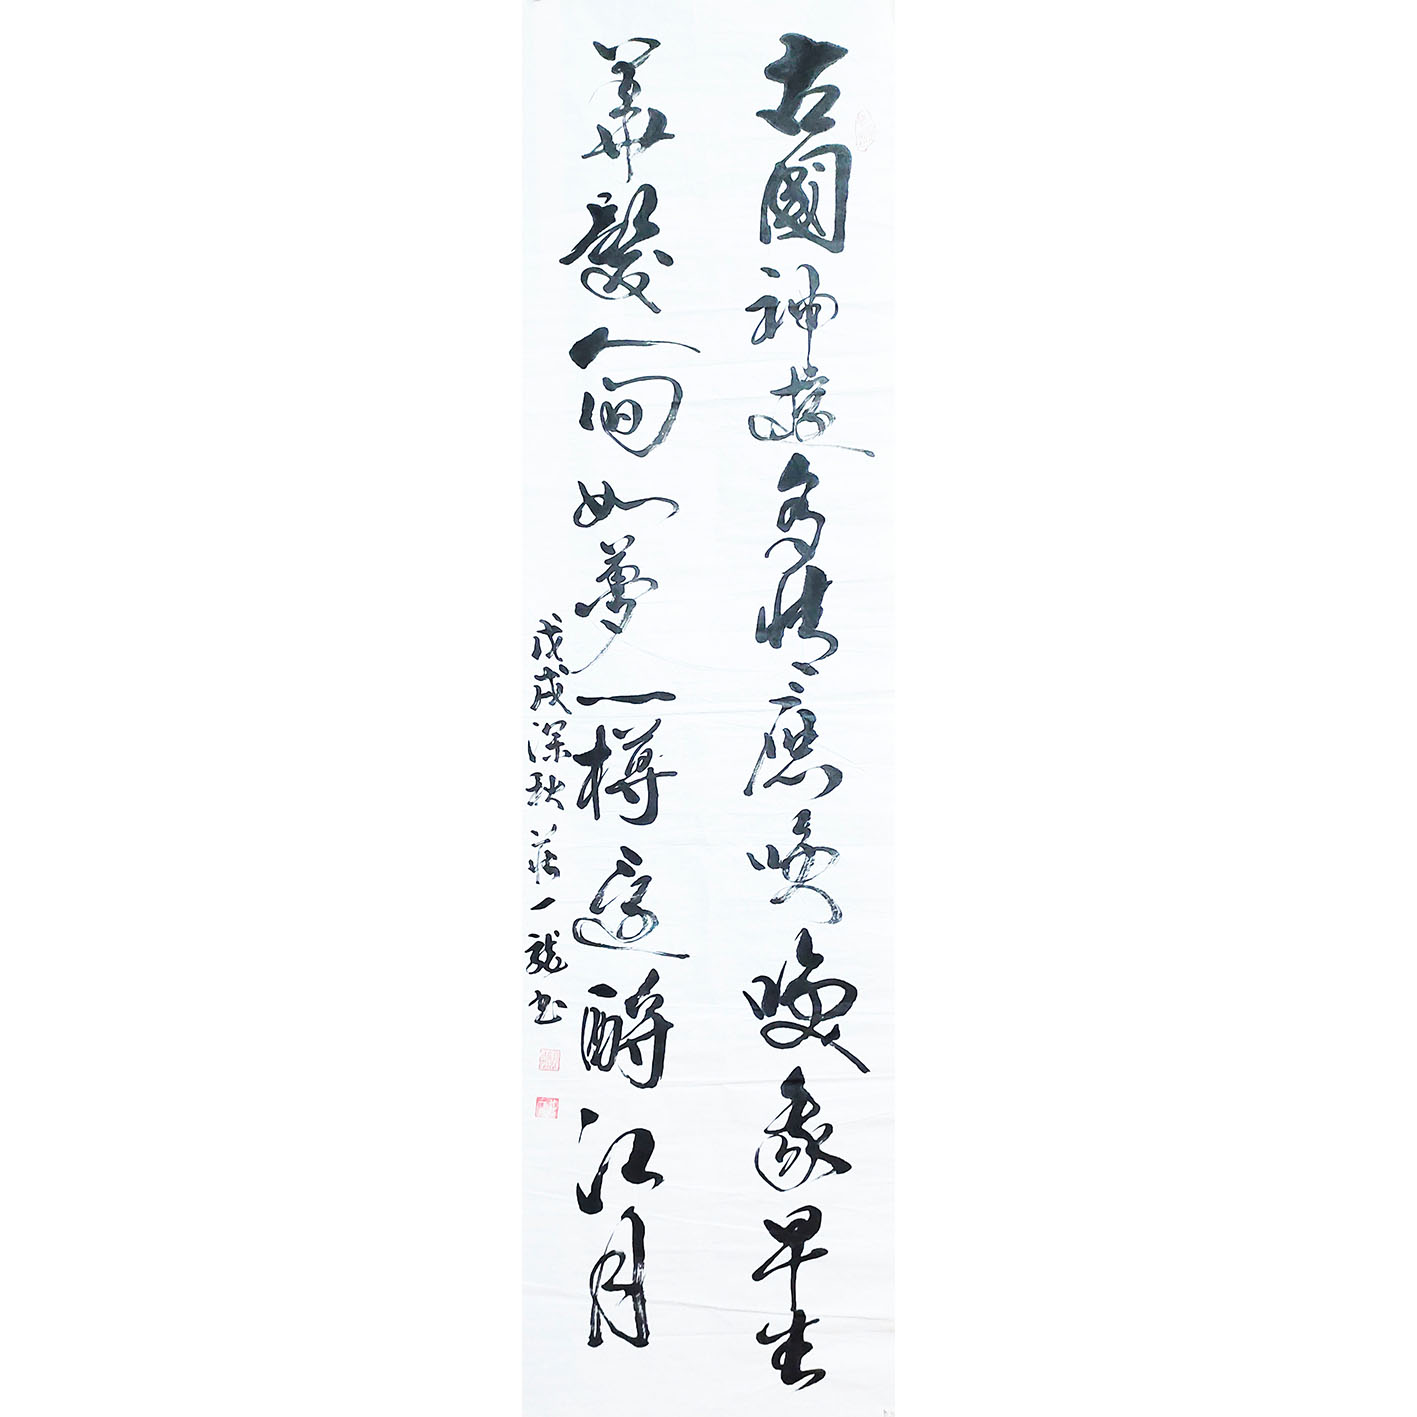 古國神遊多情應喚我早生
華髮人間如夢一樽還酹江月
戊戌深秋莊一龍书